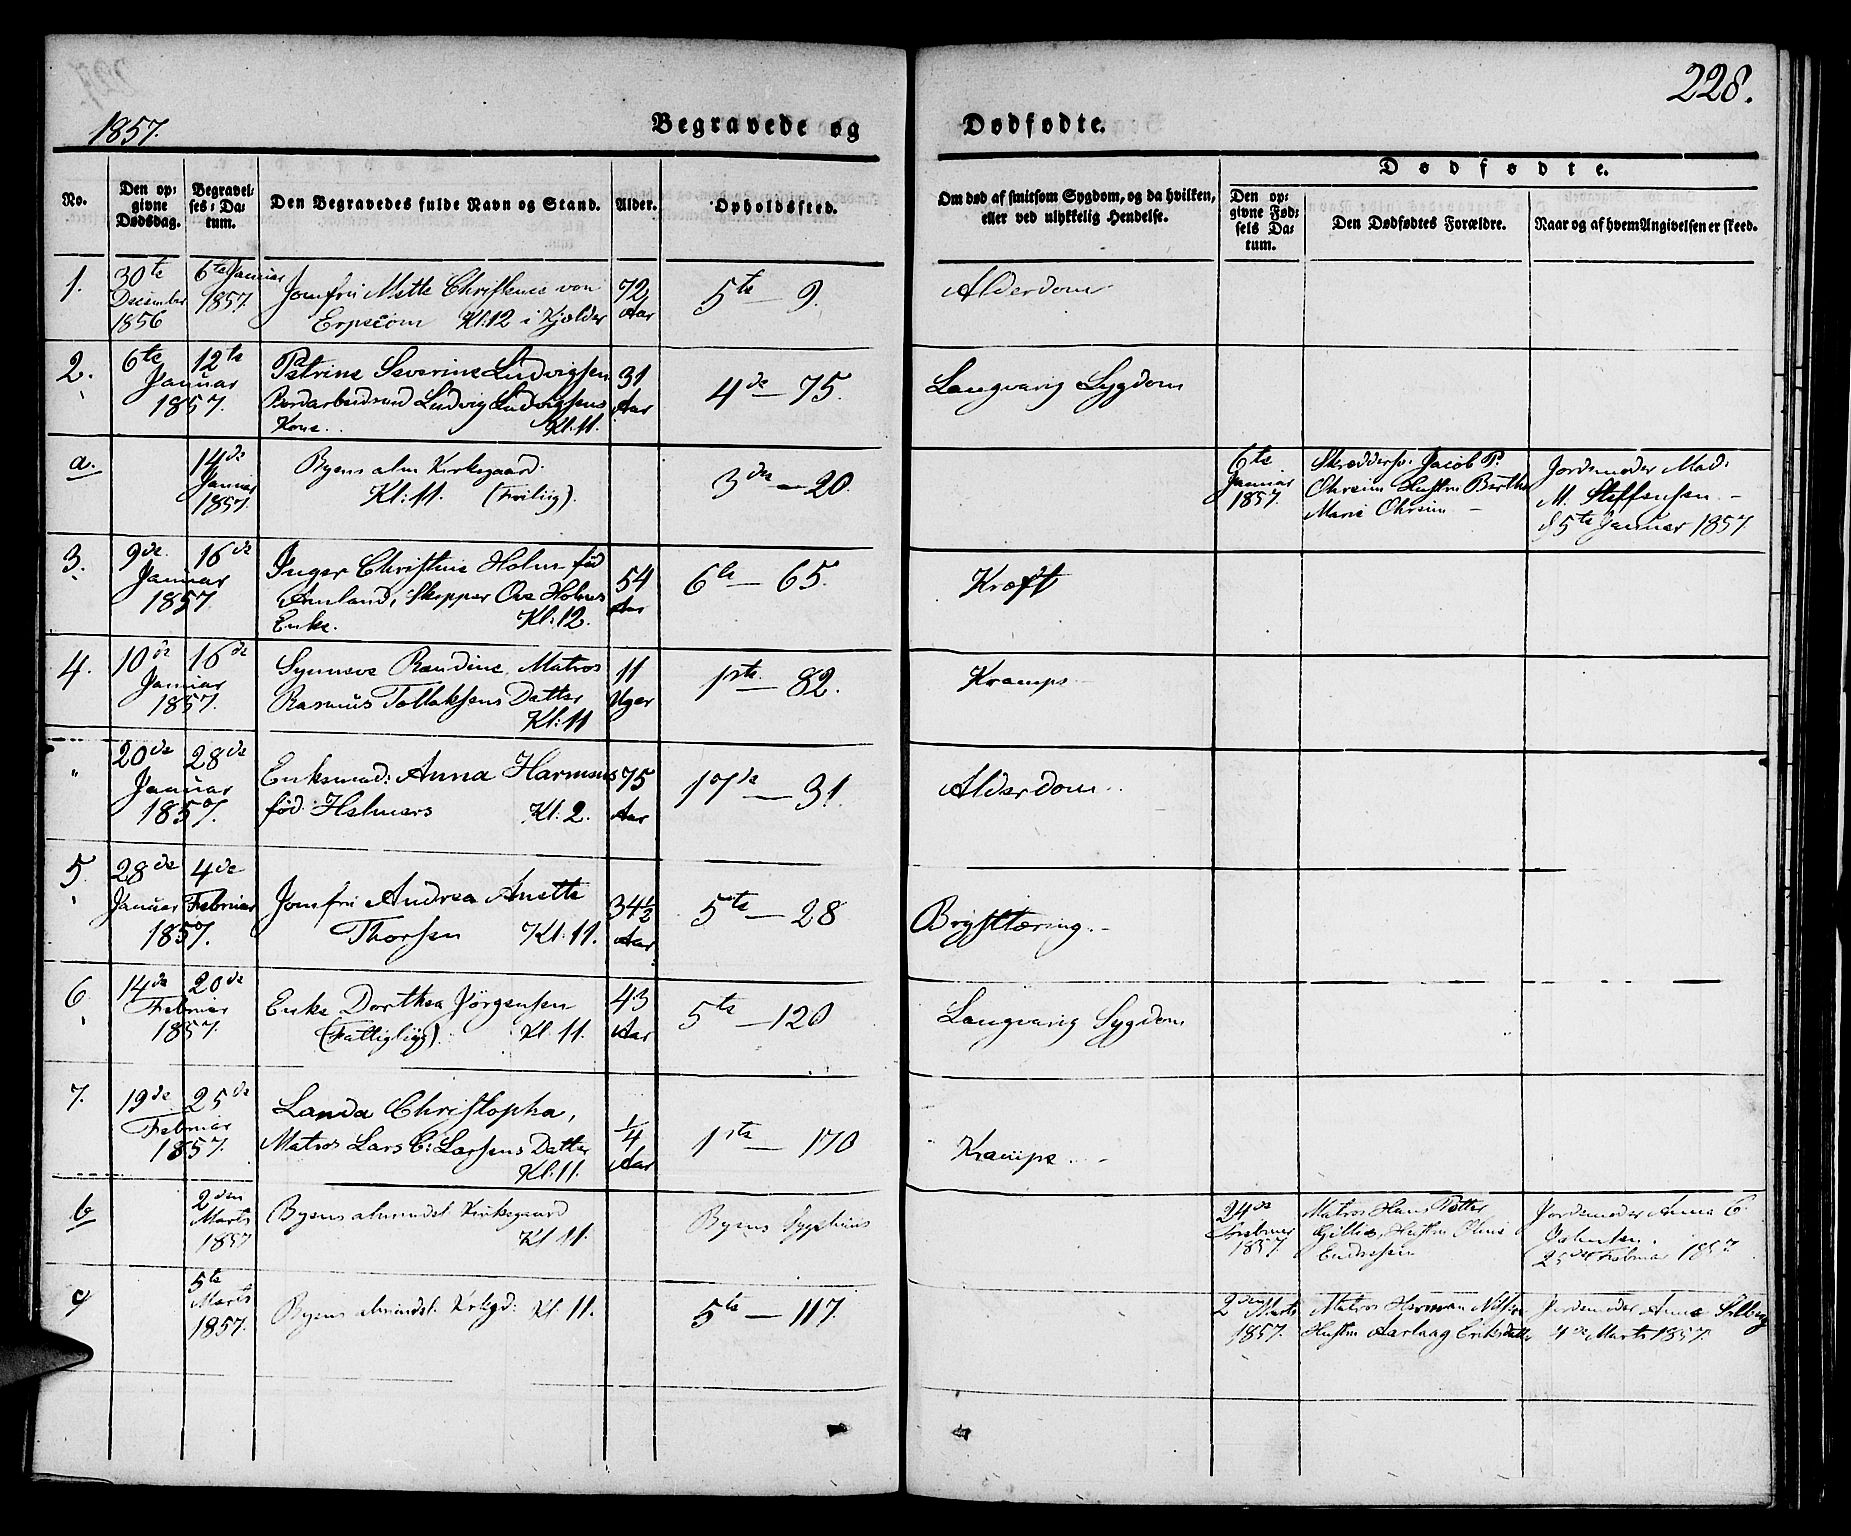 228.
1857.
Begravede og Dødfødte.
Dødfødte.
No.
Den op-
givne
Dødsdag.
Begravel-
ses-Da-
tum.
Den Begravedes fulde Navn og Stand.
Alder.
Opholdssted.
Om død af smitsom Sygdom, og da hvilken,
eller ved ulykkelig Hendelse.
Den op-
givne Fød-
sels Da-
tum.
Den Dødfødtes Forældre.
Naar og af hvem Angivelsen er skeed.
1.
30te
December
1856
6te Januar
1857.
Jomfru Mette Christence von
Kl: 12 i Kjælder
72
Aar
5te — 9.
Alderdom
2.
6te
12te
Januar
1857.
Petrine Severine Ludvigsen
Ludvig Ludvigsens
Kone.. Kl: 11.
31
Aar
4de — 75.
Langvarig Sygdom
a.
14de
Januar
1857.
Byens alm Kirkegaard.
Kl: 11. (Friliig).
3die — 20.
6te
Januar
1857.
Skreddersv: Jacob P.
Hustru Berthe
Marie
Jordemoder Mad:
M. Steffensen —
Januar 1857
3.
9de
16de
Januar
1857
Inger Christine Holm fød
Skipper Ove Holms
Enke. Kl: 12.
54
Aar
6te — 65.
Kræft
4.
10de
16de
Januar
1857.
Synneve Randine, Matros
Rasmus Tollaksens Datter
Kl: 11
11
Uger
1ste — 82.
Krampe
"
20de
28de
Januar
1857.
Enkemad: Anna Harmens
fød: Helmers Kl: 2.
75
Aar
17de — 31.
Alderdom..
5.
28de
4de
Januar Februar
1857.
Jomfru Andrea Anette
Thorsen Kl: 11.
34½
Aar
5te — 28
Brystæring.
6.
14de
20de
Februar
1857.
Enke Dorthea Jørgensen
(Fattigliig). Kl: 11.
43
Aar
5te — 120
Langvarig Sygdom
7.
19de
25de
Februar
1857.
Landa Christopha,
Matros Lars C: Larsens Datter
Kl: 11.
¼
Aar
1ste — 170
Krampe
b
2den
Marts
1857
Byens almindel Kirkegaard
Kl 11.
Byens Sygehuus
24de
Februar
1857.
Matros Hans Petter
Hustru Oline
Endresen
Jordemoder Anna C.
25de Februar 1857.
c
5te
Marts
1857.
Byens almindel: Kirkgd: Kl 11.
5te — 117.
2den Marts
1857.
Matros Herman Nilsen
Hustru Aarlaug Eriksdatter
Jordemoder Anna
4de Marts 1857.